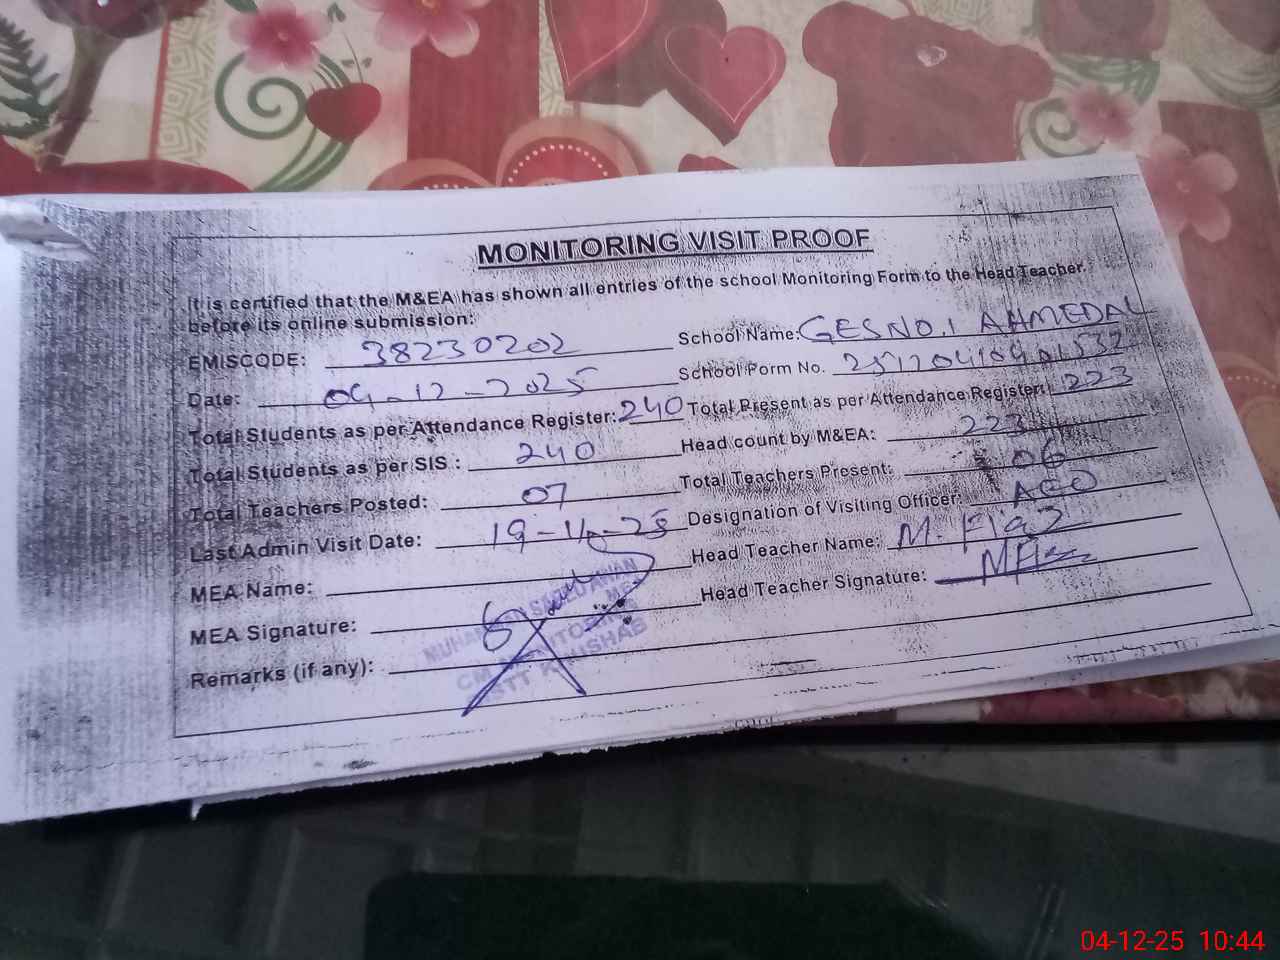 MONITORING VISIT PROOF
It is certified that the M&EA has shown all entries of the school Monitoring Form to the Head Teacher.
before its online submission:
EMISCODE: 38230202 School Name: GES NO.1 AHMEDAL
Date: 04-12-2025 School Form No. 2512041090
Total Students as per Attendance Register: 240 Total Present as per Attendance Register: 223
Total Students as per SIS : 240 Head count by M&EA: 223
Total Teachers Posted: 07 Total Teachers Present: 06
Last Admin Visit Date: Designation of Visiting Officer: AEO
MEA Name: Head Teacher Name: M. Fiaz
MEA Signature: Head Teacher Signature:
Remarks (if any):
04-12-25 10:44